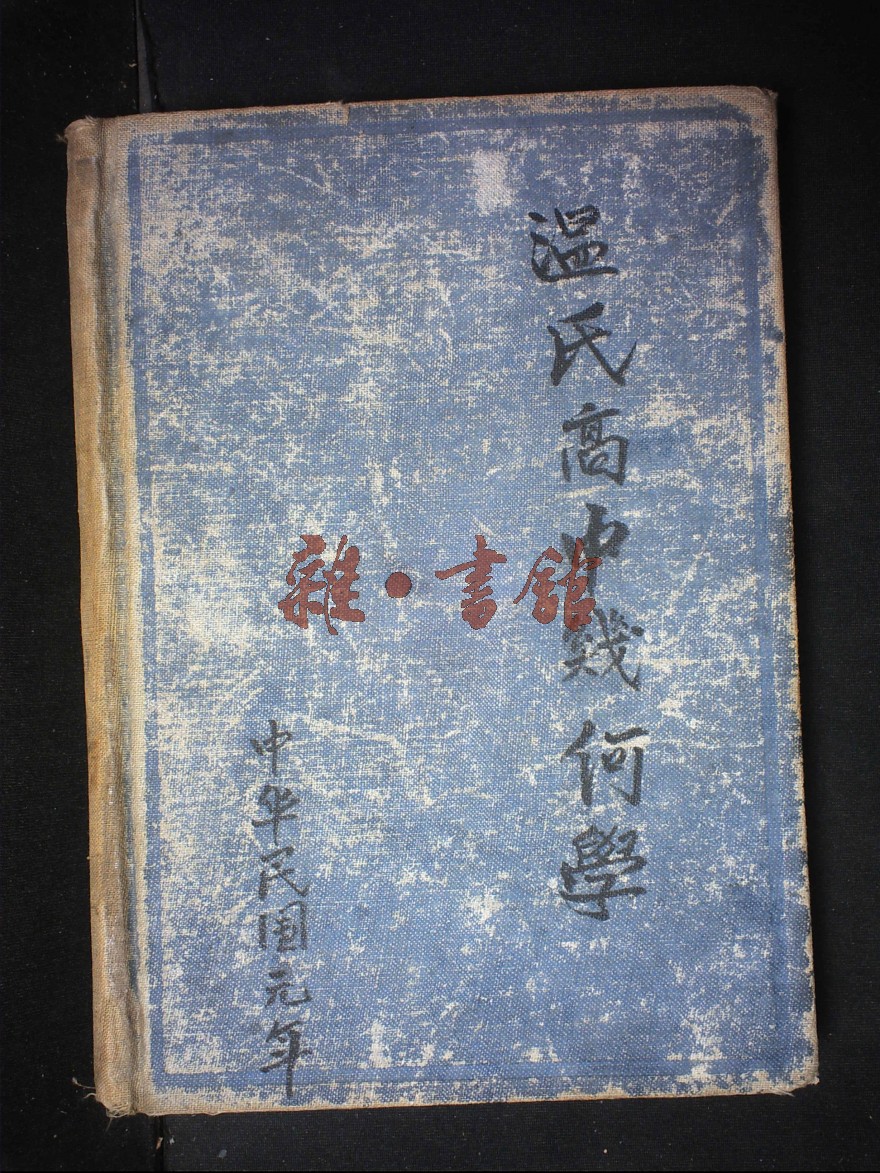 温氏高中幾何學
中华民國元年
雜·書館